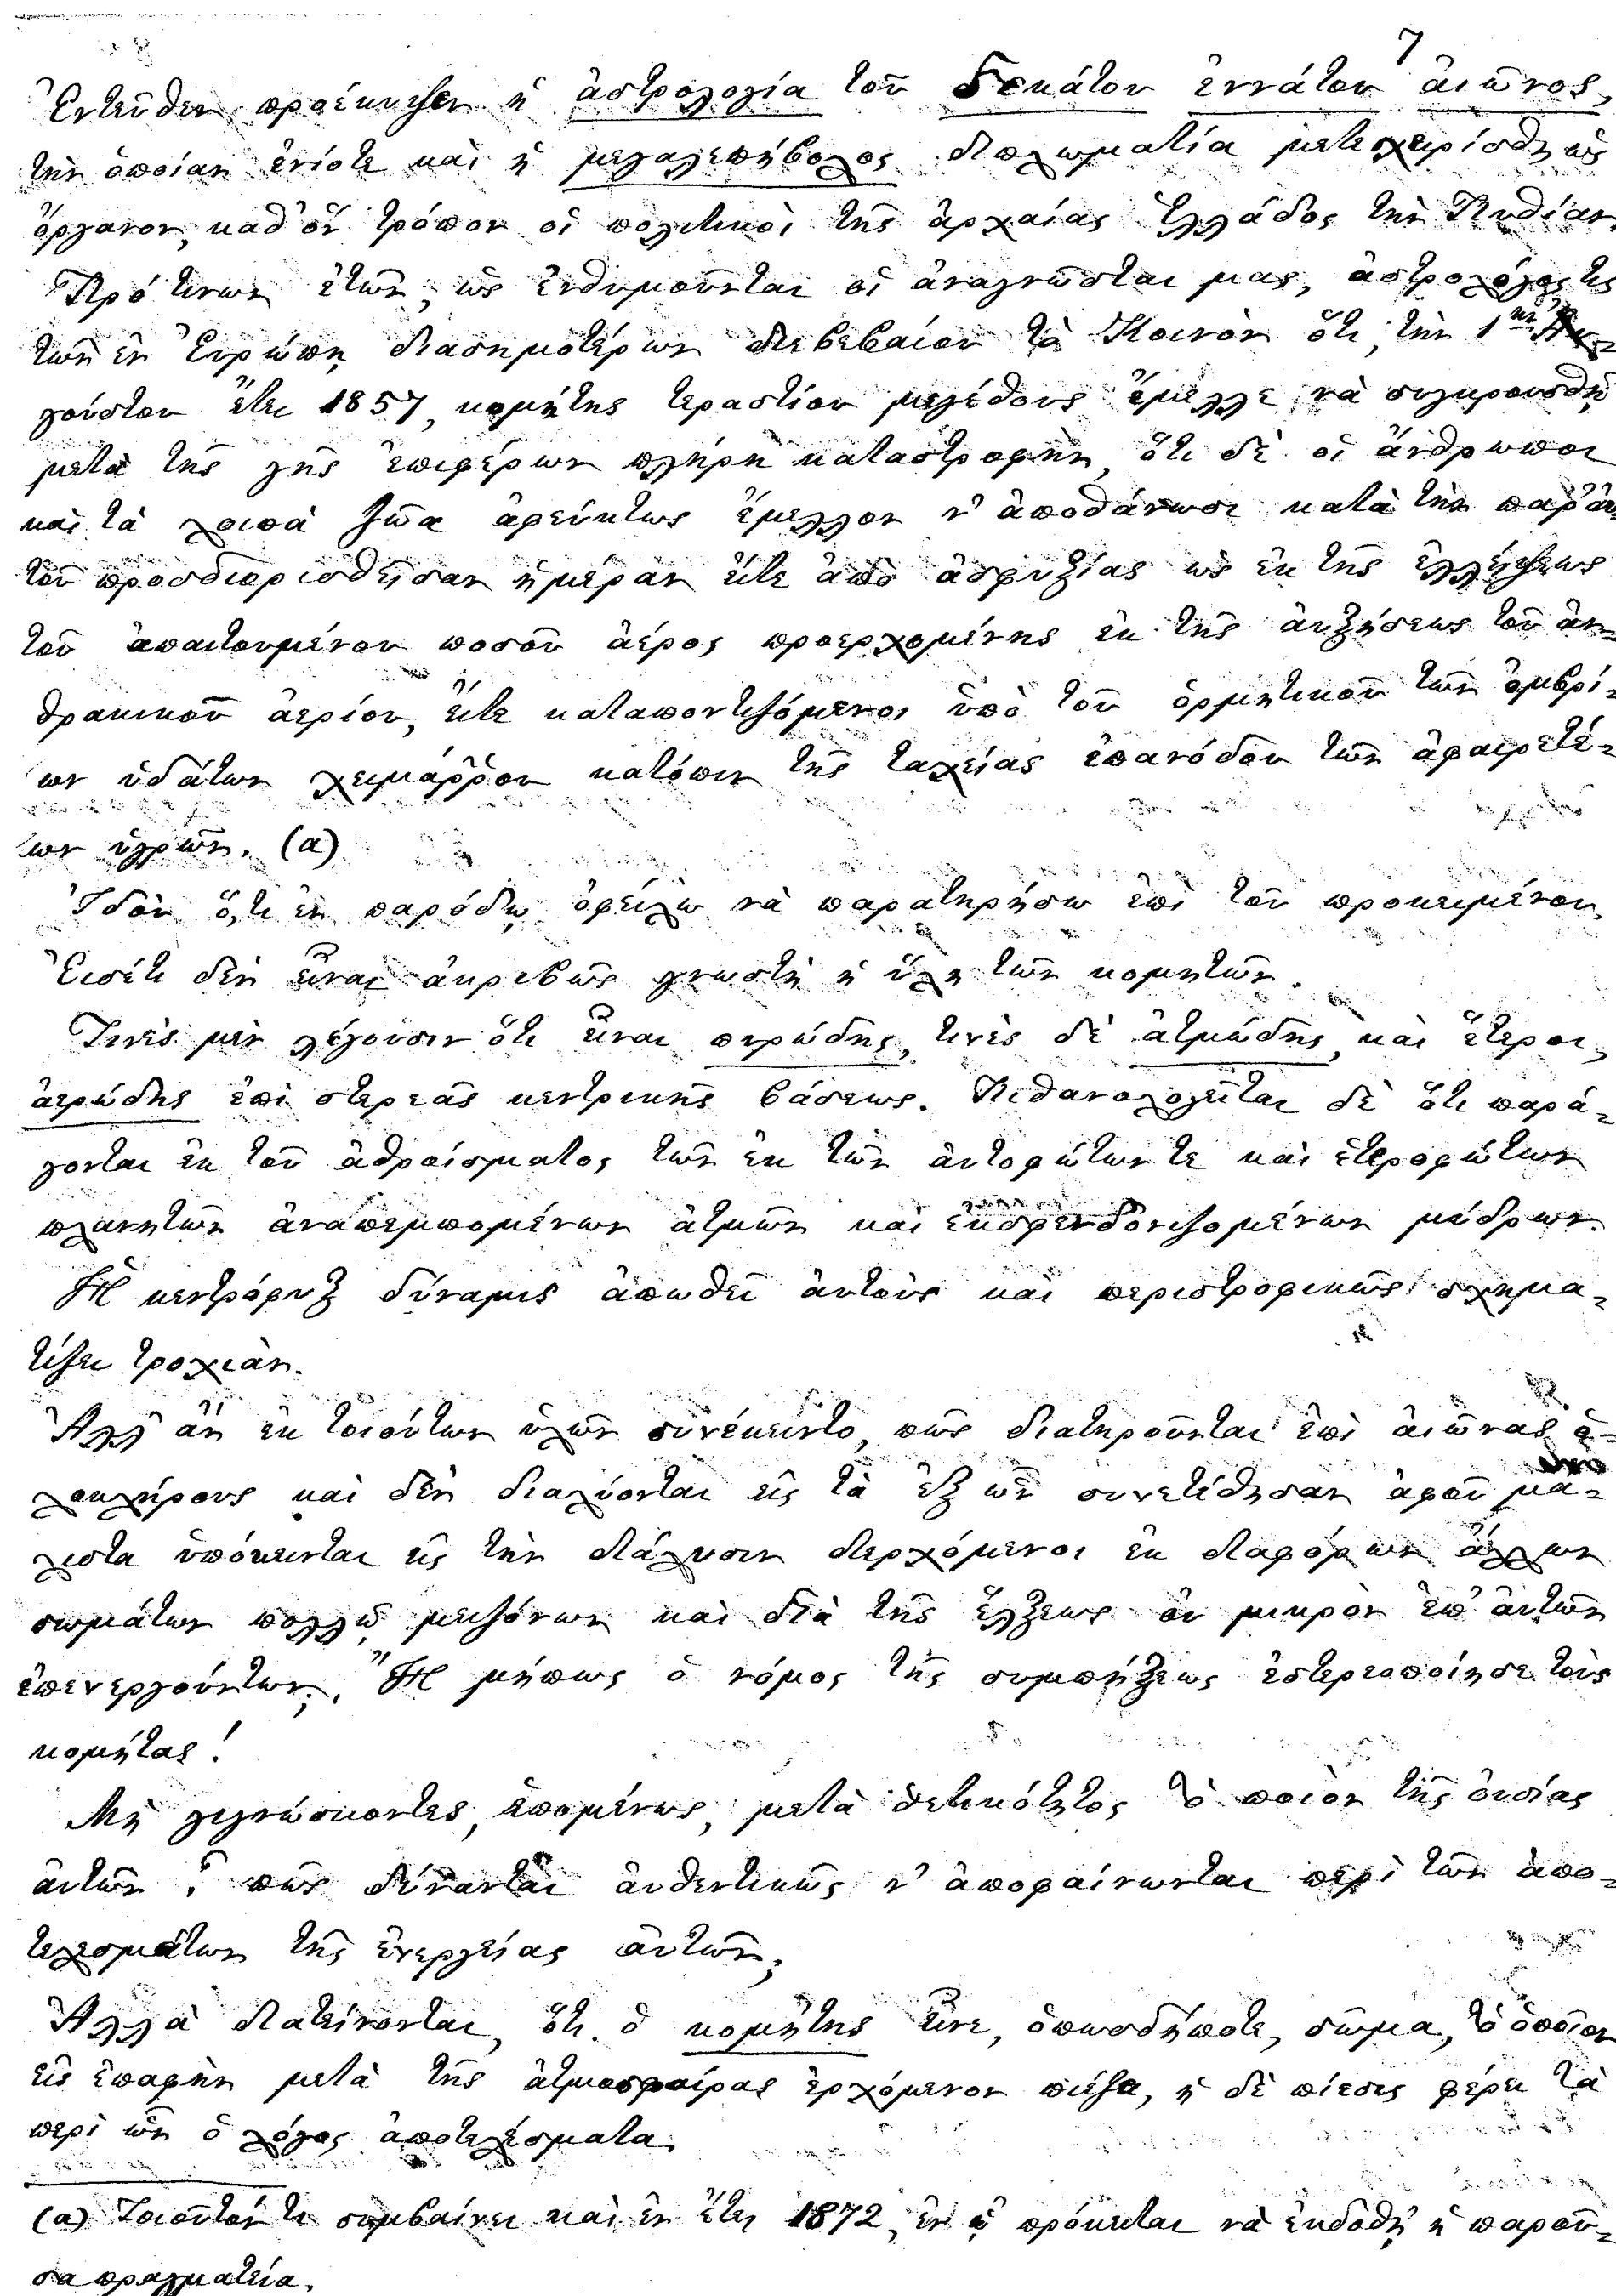 7
Ἐντεῦθεν προέκυψεν ἡ ἀστρολογία τοῦ δεκάτου ἐννάτου ἀιῶνος,
τὴν ὁποίαν ἐνίοτε καὶ ἡ μεγαλεπήβολος διπλωματία μετεχειρίσθη ὡς
ὄργανον, καθ' ὅν τρόπον οἱ πολιτικοὶ τῆς ἀρχαίας Ἑλλάδος τὴν Πυθίαν.
Πρό τινων ἐτῶν, ὡς ἐνθυμοῦνται οἱ ἀναγνῶσται μας, ἀστρολόγος τις
τῶν ἐν Ἐυρώπῃ διασημοτέρων διεβεβαίου τὸ Κοινὸν ὅτι, τὴν 1ην Ἀυ-
γούστου ἔτει 1857, κομήτης τεραστίου μεγέθους ἔμελλε νὰ συγκρουσθῇ
μετὰ τῆς γῆς ἐπιφέρων πλήρη καταστροφὴν, ὅτι δὲ οἱ ἄνθρωποι
καὶ τὰ λοιπὰ ζῶα ἀφεύκτως ἔμελλον ν' ἀποθάνωσι κατὰ τὴν παρ' ἀυ-
τοῦ προσδιορισθεῖσαν ἡμέραν ἔιτε ἀπὸ ἀσφυξίας ὡς ἐκ τῆς ἐλλείψεως
τοῦ ἀπαιτουμένου ποσοῦ ἀέρος προερχομένης ἐκ τῆς ἀυξήσεως τοῦ ἀν-
θρακικοῦ ἀερίου, ἔιτε καταποντιζόμενοι ὑπὸ τοῦ ὁρμητικοῦ τῶν ὀμβρί-
ων ὑδάτων χειμάῤῥου κατόπιν τῆς ταχείας ἐπανόδου τῶν ἀφαιρετέ-
ων ὑγρῶν. (α)
Ἰδοὺ ὅ,τι ἐν παρόδῳ ὀφείλω νὰ παρατηρήσω ἐπὶ τοῦ προκειμένου.
Ἐισέτι δὲν εἶναι ἀκριβῶς γνωστὴ ἡ ὕλη τῶν κομητῶν.
Τινὲς μὲν λέγουσιν ὅτι εἶναι πυρώδης, τινὲς δὲ ἀτμώδης, καὶ ἕτεροι,
ἀερώδης ἐπὶ στερεᾶς κεντρικῆς βάσεως. Πιθανολογεῖται δὲ ὅτι παρά-
γονται ἐκ τοῦ ἀθροίσματος τῶν ἐκ τῶν ἀυτοφώτων τε καὶ ἑτεροφώτων
πλανητῶν ἀναπεμπομένων ἀτμῶν καὶ ἐκσφενδονιζομένων μύδρων.
Ἡ κεντρόφυξ δύναμις ἀπωθεῖ ἀυτοὺς καὶ περιστροφικῶς σχημα-
τίζει τροχιὰν.
Ἀλλ' ἂν ἐκ τοιούτων ὑλῶν συνέκειντο, πῶς διατηροῦνται ἐπὶ ἀιῶνας ὁ-
λοκλήρους καὶ δὲν διαλύονται εἰς τὰ ἐξ ὧν συνετέθησαν ἀφοῦ μά-
λιστα ὑπόκεινται εἰς τὴν διάλυσιν διερχόμενοι ἐκ διαφόρων ἄλλων
σωμάτων πολλῷ μειζόνων καὶ διὰ τῆς ἕλξεως ὀυ μικρὸν ἐπ' ἀυτῶν
ἐπενεργούντων; Ἢ μήπως ὁ νόμος τῆς συμπήξεως ἐστερεοποίησε τοὺς
κομήτας!
Μὴ γιγνώσκοντες, ἑπομένως, μετὰ θετικότητος τὸ ποιὸν τῆς ὀυσίας
ἀυτῶν, πῶς δύνανται ἀυθεντικῶς ν' ἀποφαίνωνται περὶ τῶν ἀπο-
τελεσμάτων τῆς ἐνεργείας ἀυτῶν;
Ἀλλὰ διατείνονται, ὅτι ὁ κομήτης εἶνε, ὁπωσδήποτε, σῶμα, τὸ ὁποῖον
εἰς ἐπαφὴν μετὰ τῆς ἀτμοσφαίρας ἐρχόμενον πιέζει, ἡ δὲ πίεσις φέρει τὰ
περὶ ὧν ὁ λόγος ἀποτελέσματα.
(α) Τοιοῦτόν τι συμβαίνει καὶ ἐν ἔτει 1872, ἐν ᾧ πρόκειται νὰ ἐκδοθῇ ἡ παροῦ-
σα πραγματεία.